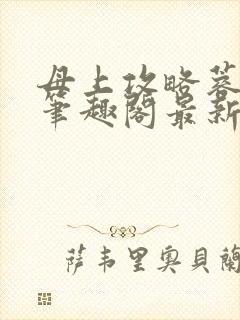 母上攻略蓉
筆趣閣最新
萨韦里奥贝蘭